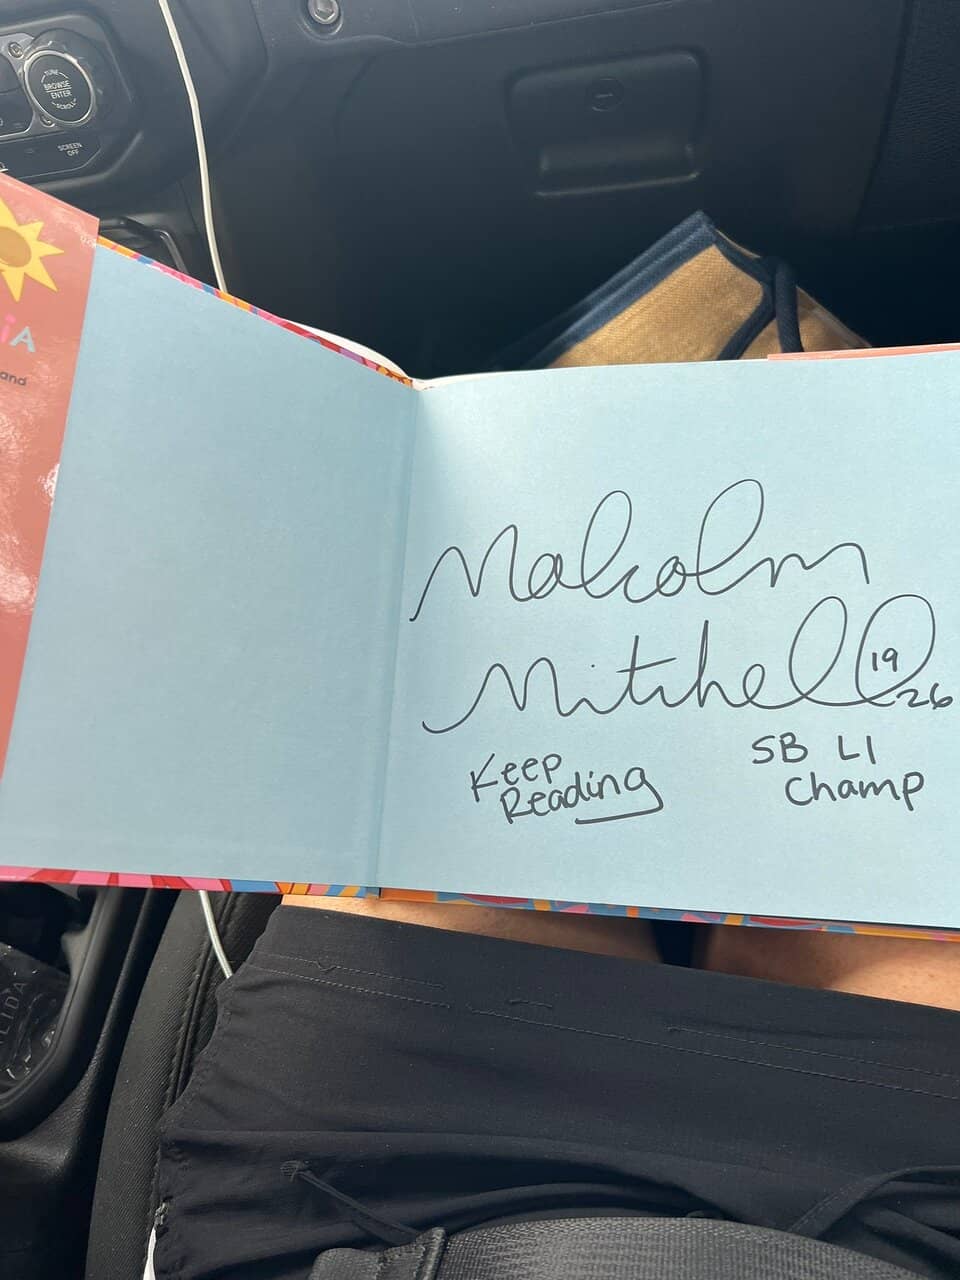 TUNE
BROWSE
ENTER
SCROLL
SCREEN
OFF
iA
and
Malcolm
Mitchell
19
26
Keep
Reading
SB LI
Champ